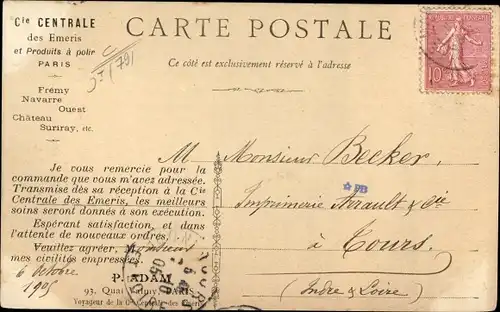 Cie CENTRALE
des Emeris
et Produits à polir
PARIS
Frémy
Navarre
Ouest
Château
Suriray, etc.
CARTE POSTALE
Ce côté est exclusivement réservé à l'adresse
10
M Monsieur Becker,
Imprimerie Arrault & Cie
à Tours.
(Indre & Loire)
PB
Je vous remercie pour la
commande que vous m'avez adressée.
Transmise dès sa réception à la Cie
Centrale des Emeris, les meilleurs
soins seront donnés à son exécution.
Espérant satisfaction, et dans
l'attente de nouveaux ordres,
Veuillez agréer, Monsieur
mes civilités empressées.
6 Octobre
1905
P. ADAM
93, Quai Valmy, PARIS
Voyageur de la Cie Centrale des Emeris